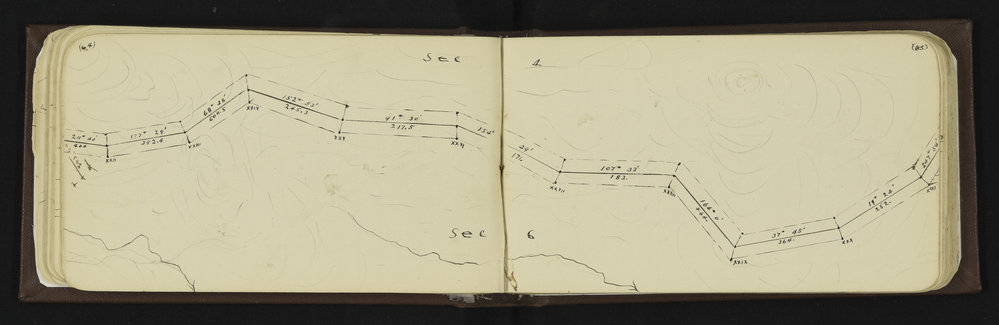 (64)
(65)
SEC 4.
211° 40'
400
XXII
177° 28'
392.4
XXIII
68° 36'
202.5
XXIV
152° 52'
245.3
XXV
91° 30'
217.5
XXVI
154° 39'
176.
XXVII
107° 33'
183.
XXVIII
166° 0'
266.
XXIX
37° 45'
364.
XXX
19° 24'
252.
SEC 6